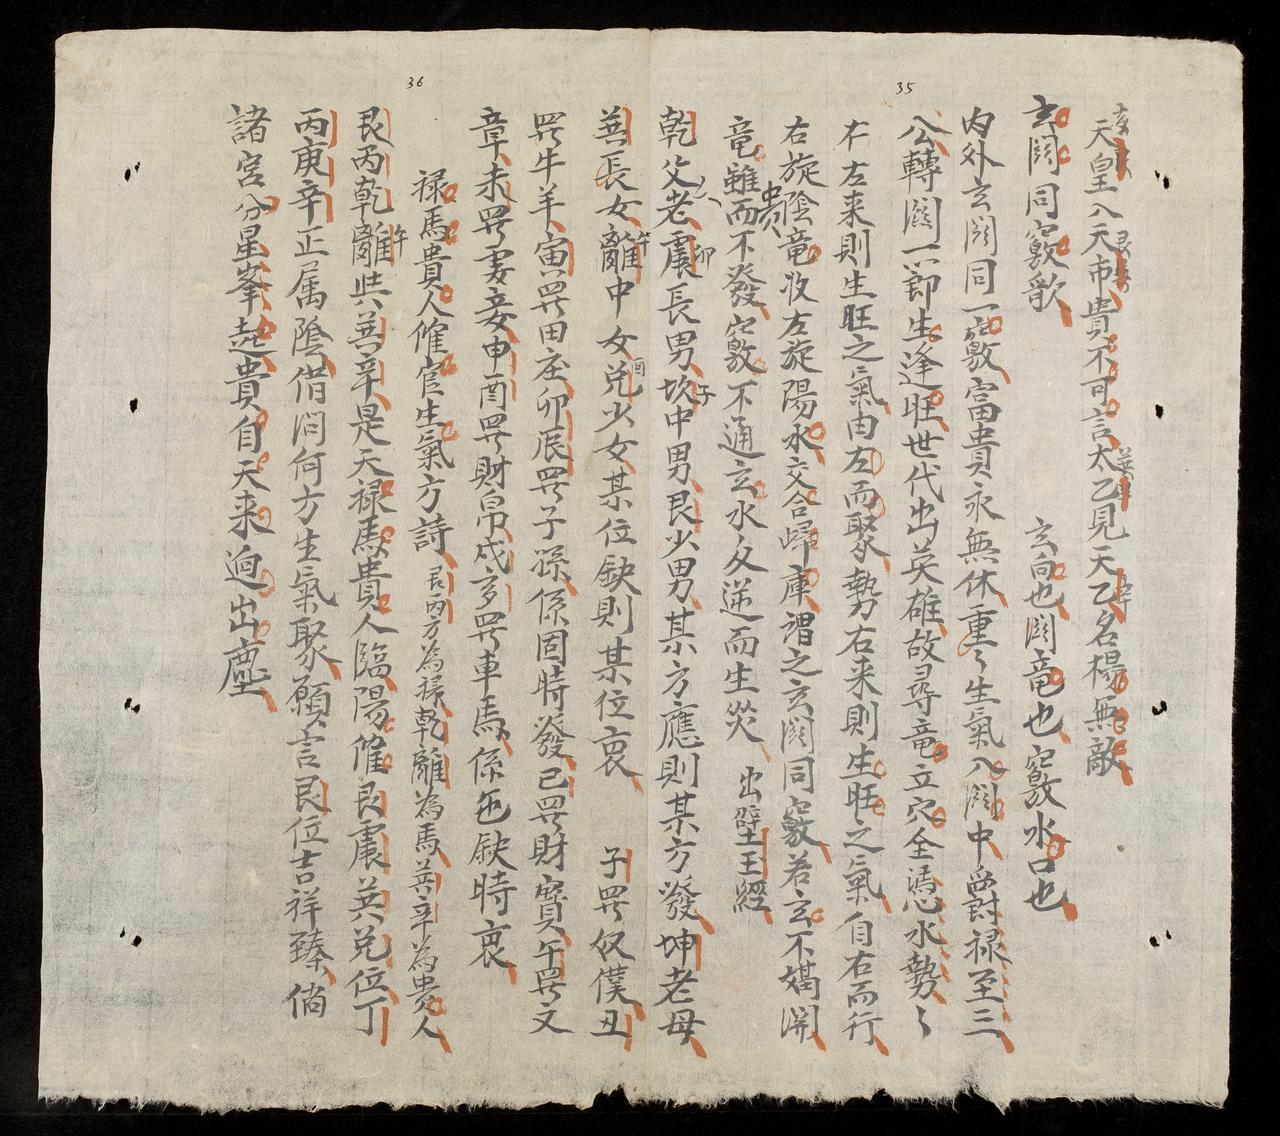 35
天皇入天市貴不可言太乙見天乙名楊無敵
玄關同竅歌 玄向也關竜也竅水口也
内外玄關同一竅富貴永無休重〻生氣入關中爵禄至三
公轉關一節生逢旺世代出英雄故尋竜立穴全憑水勢〻
左來則生旺之氣由左而聚勢右來則生旺之氣自右而行
右旋陰竜收左旋陽水交合歸庫謂之玄關同竅若玄不媾關
竜雖貴而不發竅不通玄水文逆而生灾 出壁玉經
乾父老震卯長男坎子中男艮少男某方應則某方發坤老母
巽長女離午中女兌酉少女某位缺則某位衰 子旱奴僕丑
旱牛羊寅旱田庄卯辰旱子孫係固時發巳旱財寶午旱文
章未旱妻妾申酉旱財帛戌亥旱車馬係迤缺時衰
36
禄馬貴人催官生氣方詩 艮丙方為禄乾離為馬巽辛為貴人
艮丙乾離午共巽辛是天禄馬貴人臨陽催艮震巽兌位丁
丙庚辛正属陰借問何方生氣聚願言艮位吉祥臻倘
諸宮分星峯起貴自天来迥出塵